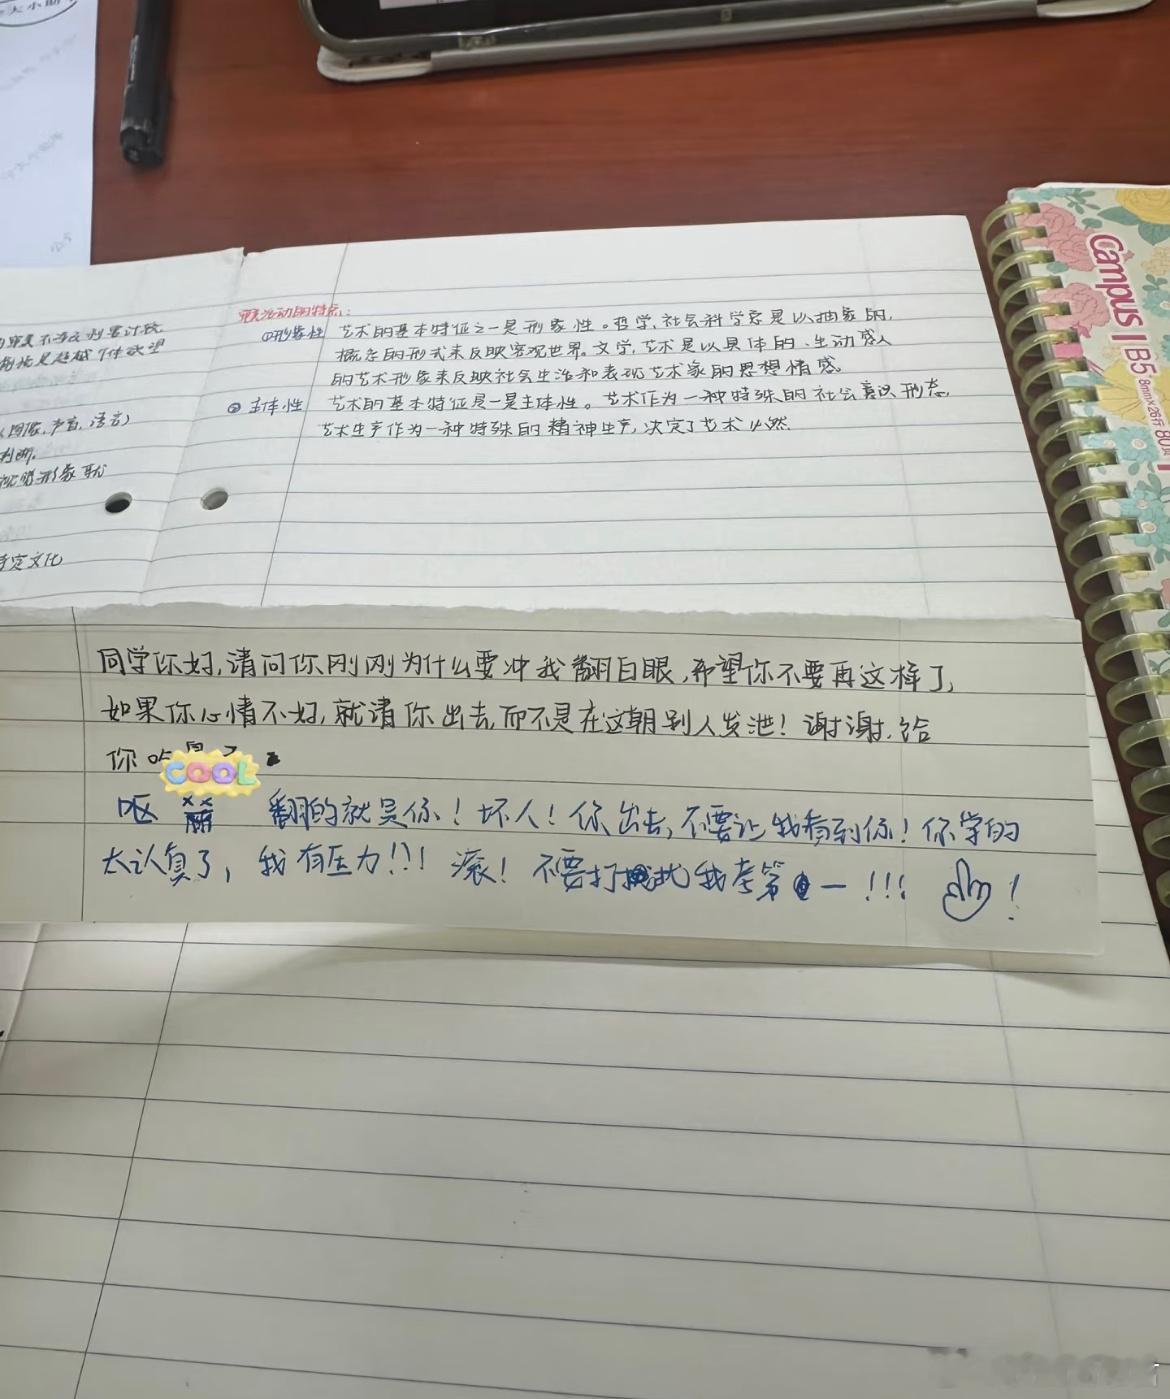 审美活动的特点:
①形象性 艺术的基本特征之一是形象性。哲学,社会科学总是以抽象的,
概念的形式来反映客观世界。文学,艺术是以具体的、生动感人
的艺术形象来反映社会生活和表现艺术家的思想情感。
② 主体性 艺术的基本特征是一是主体性。艺术作为一种特殊的社会意识形态,
艺术生产作为一种特殊的精神生产,决定了艺术必然.
(图像,声音,语言)
判断.
特定文化
Campus B5
8mm×26行 80
同学你好,请问你刚刚为什么要冲我翻白眼,希望你不要再这样了,
如果你心情不好,就请你出去,而不是在这朝别人发泄!谢谢.给
你吃
COOL
呕 翻的就是你!坏人!你出去,不要让我看到你!你学的
太认真了,我有压力!!!滚!不要打扰我考第一!!!